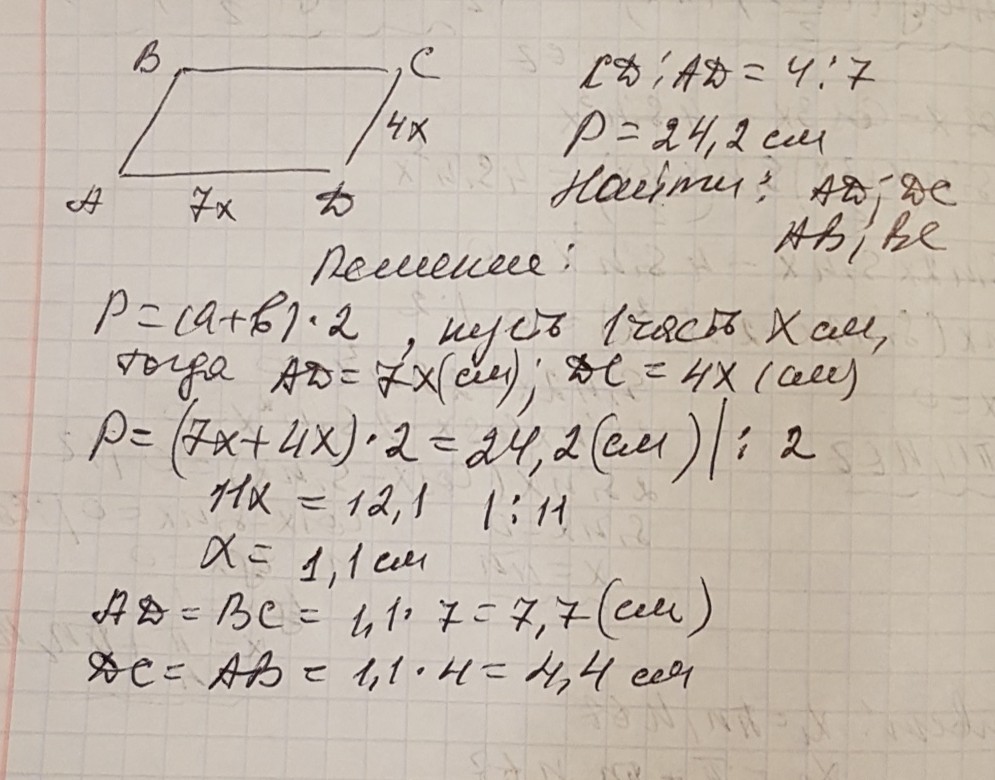 B C
4x
A 7x D
CD : AD = 4 : 7
P = 24,2 см
Найти: AD; DC
AB; BC
Решение:
P = (a + b) · 2, пусть 1 часть x см,
тогда AD = 7x (см); DC = 4x (см)
P = (7x + 4x) · 2 = 24,2 (см) | : 2
11x = 12,1 | : 11
x = 1,1 см
AD = BC = 1,1 · 7 = 7,7 (см)
DC = AB = 1,1 · 4 = 4,4 см